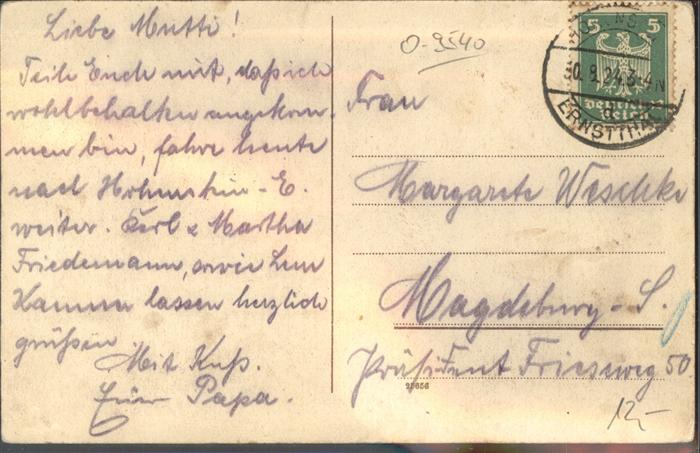 Liebe Mutti!
Teile Euch mit, daß ich
wohlbehalten angekom-
men bin, fahre heute
nach Hohenstein-E.
weiter. Karl & Martha
Friedemann, sowie
Hanna lassen herzlich
grüßen
Mit Kuß.
Euer Papa.
O-9540
5 5
30.9.24.3-4N
Deutsches
Reich
d
ERNSTTHAL
Frau
Margarete Weschke
Magdeburg-S.
Präsident Friesweg 50.
25656
12,-